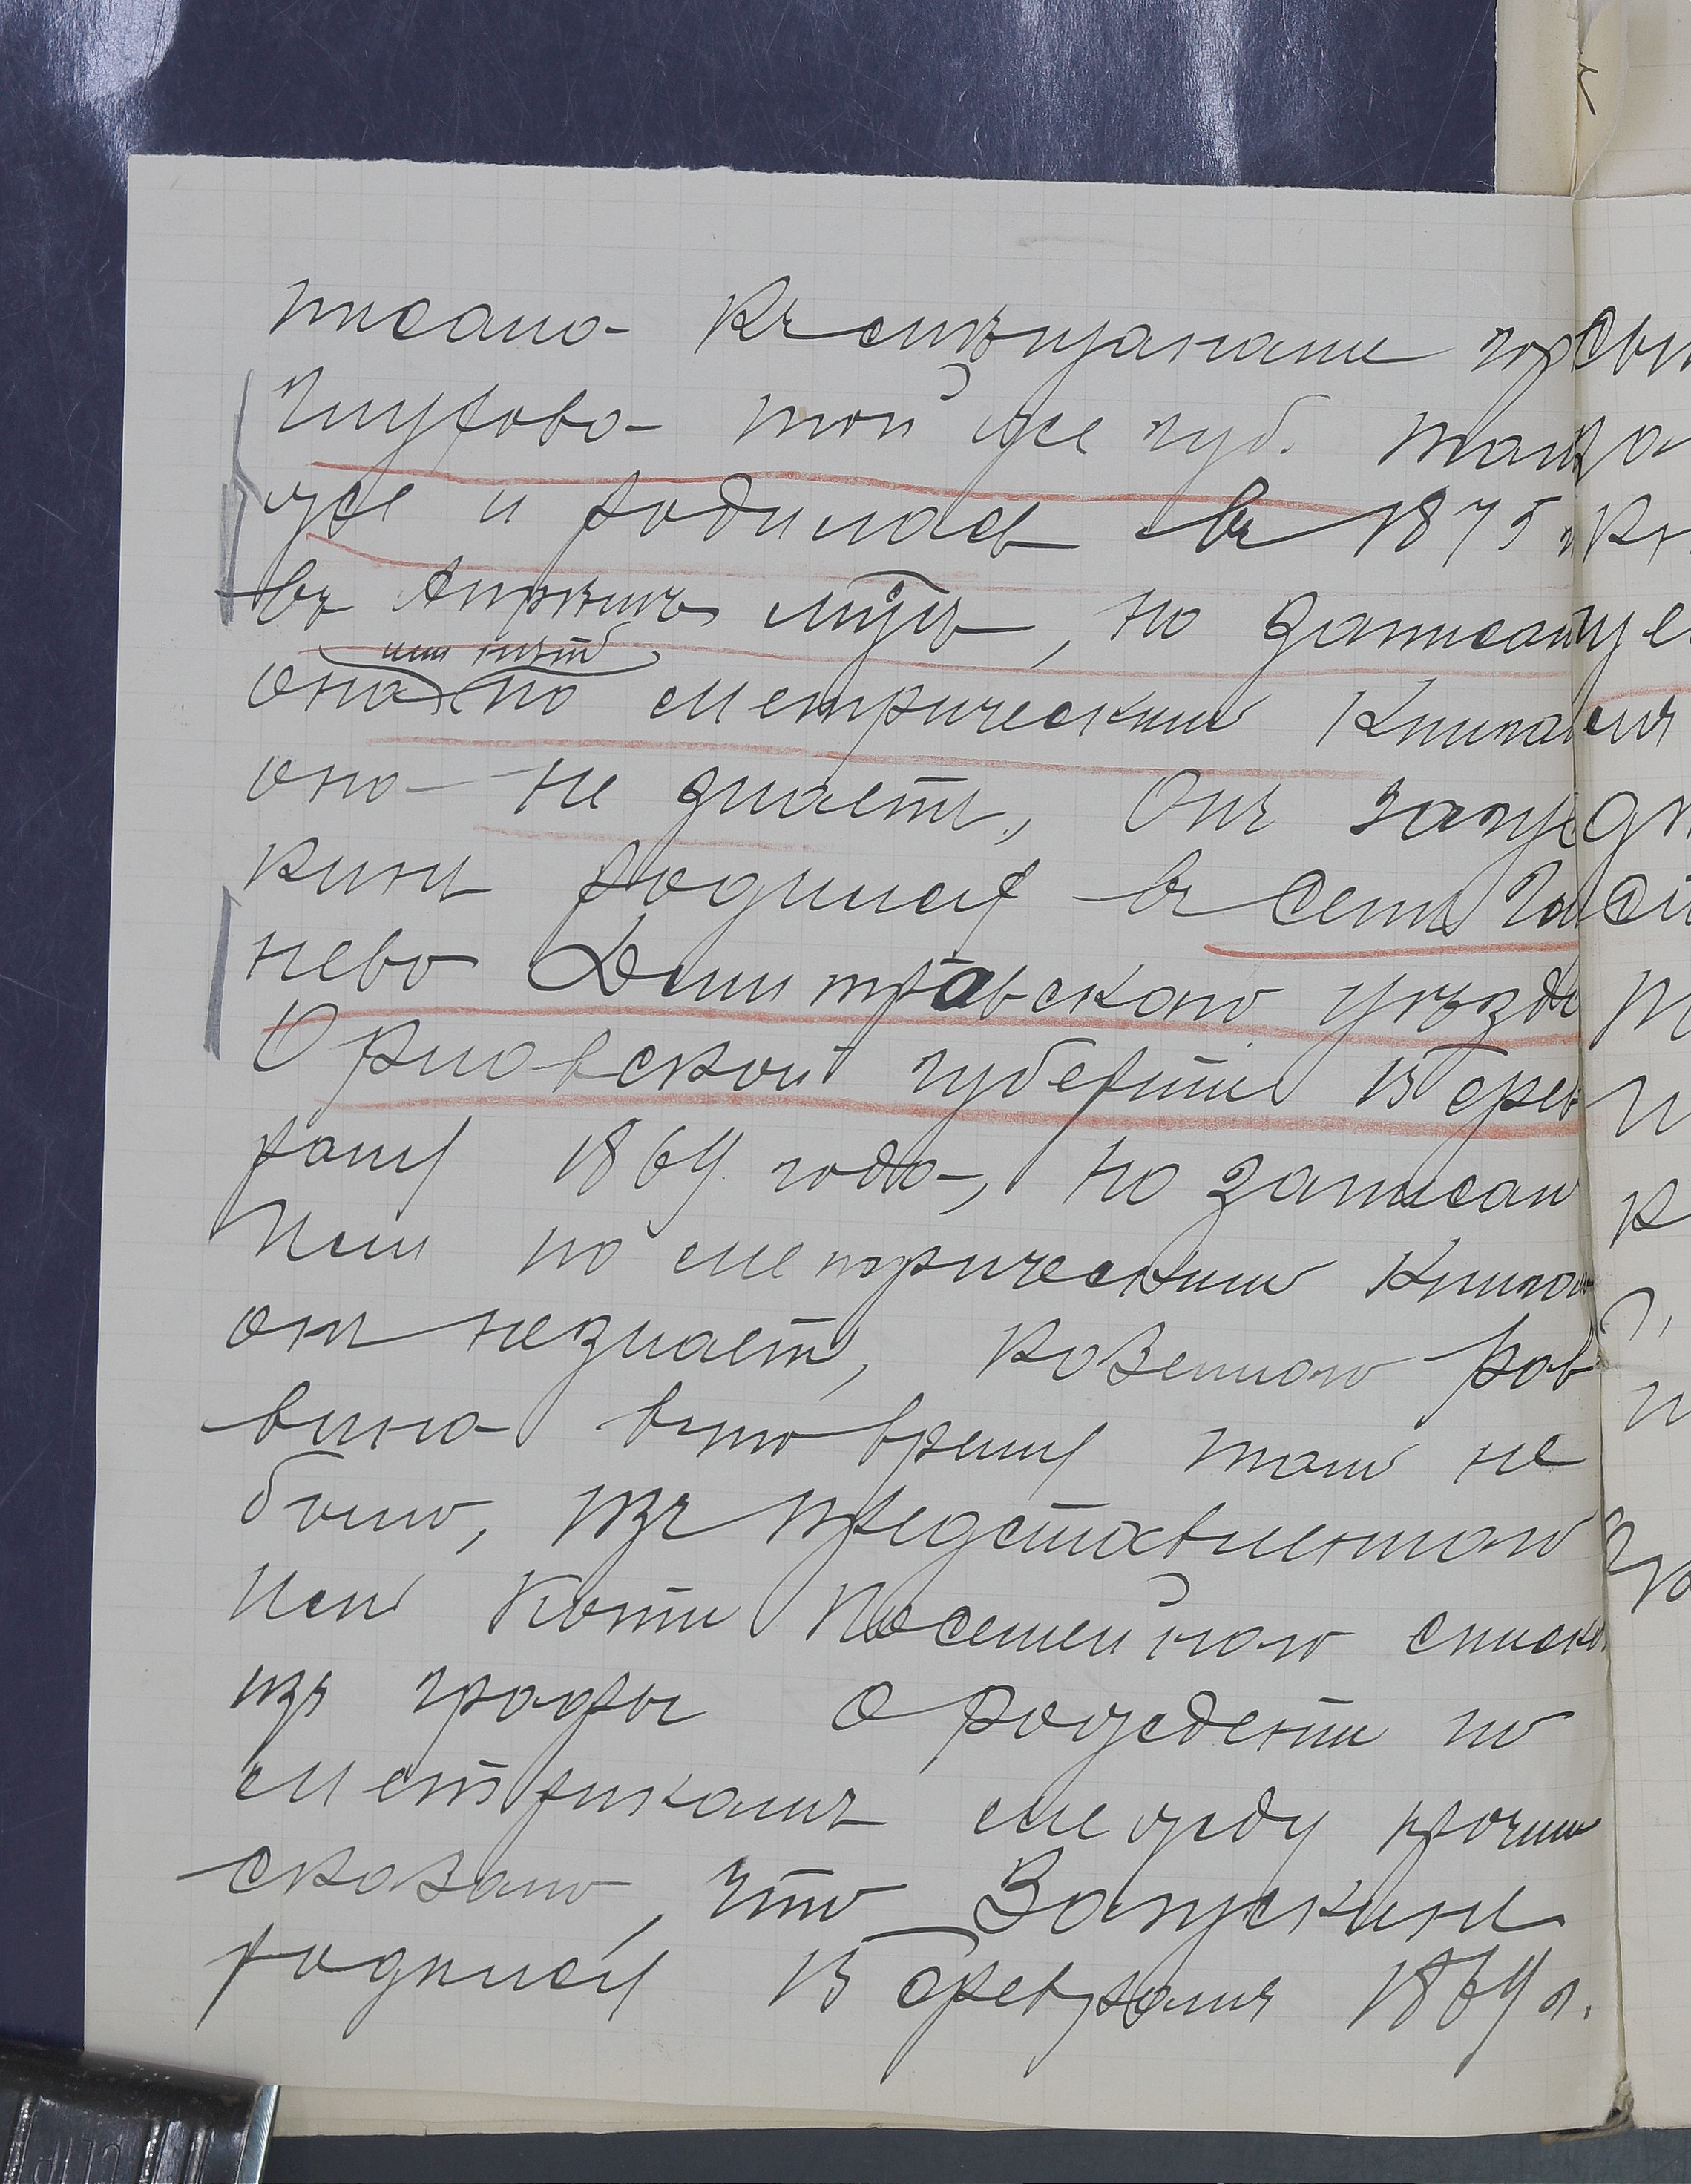 писано къ мѣщанамъ гор
Глухова той же губ. тамъ
же и родилась въ 1875 г.
въ Апрѣлѣ мѣсяцѣ, но записана
или нѣтъ
она по метрическимъ Книгам
она не знаетъ, Онъ Запус
кинъ родился въ селѣ
нево Дмитровскаго уѣзда
Орловской губерніи 15 фев
раля 1869 года, но записан
ли по метрическим Книгам
он незнаетъ, Козеннаго Рав
вина въ то время там не
было, изъ представленнаго
Им Копіи Посемейнаго списка
изъ графы О рожденіи по
метрикамъ между прочим
сказано, что Запускинъ
родился 15 февраля 1869 г.